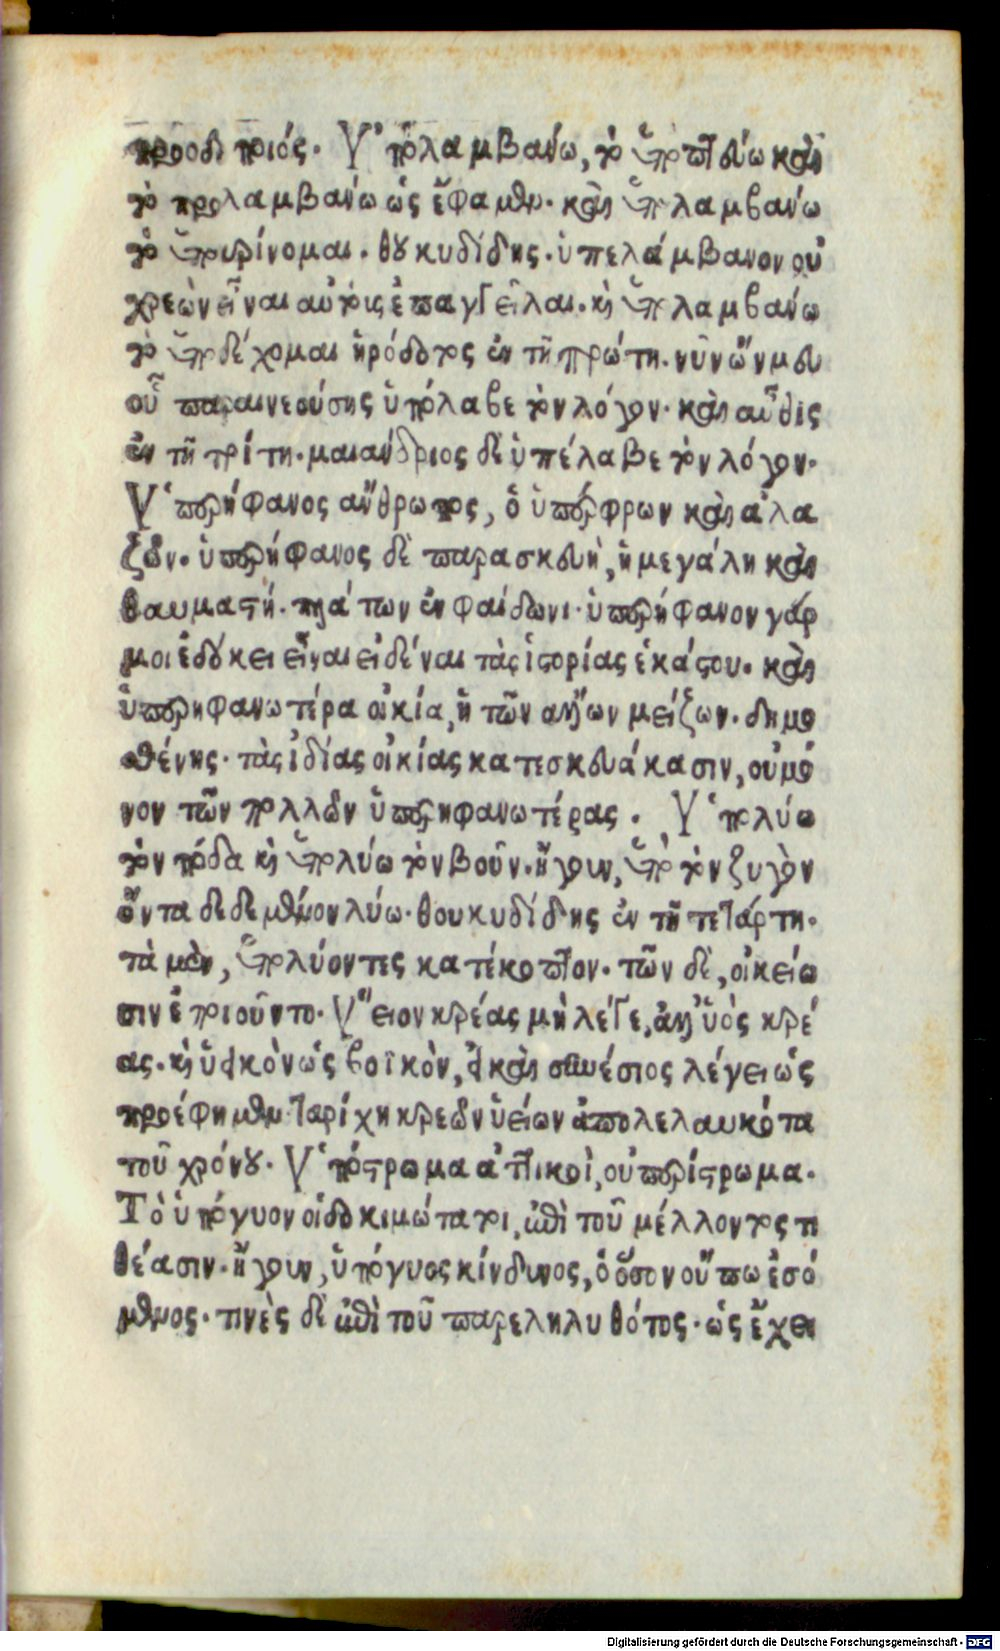 προοδοποιός. Ὑπολαμβάνω, τὸ ὑποπτεύω καὶ
τὸ προλαμβάνω ὡς ἔφαμεν. καὶ ὑπολαμβάνω
τὸ ὑποκρίνομαι. θουκυδίδης. ὑπελάμβανον οὐ
χρεὼν εἶναι αὐτοῖς ἐπαγγεῖλαι. καὶ ὑπολαμβάνω
τὸ ὑποδέχομαι ἡρόδοτος ἐν τῇ πρώτῃ. νῦν ὦν μευ
εὖ παραινεούσης ὑπόλαβε τὸν λόγον. καὶ αὖθις
ἐν τῇ τρίτῃ. μαιάνδριος δὲ ὑπέλαβε τὸν λόγον.
Ὑπερήφανος ἄνθρωπος, ὁ ὑπέρφρων καὶ ἀλα
ζών. ὑπερήφανος δὲ παρασκευὴ, ἡ μεγάλη καὶ
θαυμαστή. πλάτων ἐν φαίδωνι. ὑπερήφανον γάρ
μοι ἐδόκει εἶναι εἰδέναι τὰς ἱστορίας ἑκάστου. καὶ
ὑπερηφανωτέρα οἰκία, ἡ τῶν ἄλλων μείζων. δημο
σθένης. τὰς ἰδίας οἰκίας κατεσκευάκασιν, οὐ μό
νον τῶν πολλῶν ὑπερηφανωτέρας. Ὑπολύω
τὸν πόδα καὶ ὑπολύω τὸν βοῦν. ἤγουν, ὑπὸ τὸν ζυγὸν
ὄντα δεδεμένον λύω. θουκυδίδης ἐν τῇ τετάρτῃ.
τὰ μὲν, ὑπολύοντες κατέκοπτον. τῶν δὲ, οἰκείω
σιν ἐποιοῦντο. Ὕειον κρέας μὴ λέγε, ἀλλ' ὑὸς κρέ
ας. καὶ ὑϊκὸν ὡς βοϊκὸν, εἰ καὶ συνέσιος λέγει ὡς
προέφημεν ταρίχη κρεῶν ὑείων ἀπολελαυκότα
τοῦ χρόνου. Ὑπόστρωμα ἀττικοὶ, οὐ περίστρωμα.
Τὸ ὑπόγυον οἱ δοκιμώτατοι, ἐπὶ τοῦ μέλλοντος τι
θέασιν. ἤγουν, ὑπόγυος κίνδυνος, ὁ ὅσον οὔπω ἐσό
μενος. τινὲς δὲ ἐπὶ τοῦ παρεληλυθότος. ὡς ἔχει